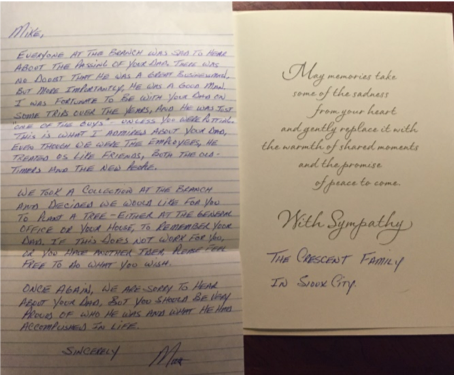 Mike,
Everyone at the branch was sad to hear
about the passing of your Dad. There was
no doubt that he was a great businessman,
but more importantly, he was a good man.
I was fortunate to be with your Dad on
some trips over the years, and he was just
"one of the guys"
This is what I admired about your Dad,
even though we were the employees, he
treated us like friends, both the old-
timers and the new people.
We took a collection at the branch
and decided we would like for you
to plant a tree - either at the general
office or your house, to remember your
Dad. If this does not work for you,
or you have another idea, please feel
free to do what you wish.
Once again, we are sorry to hear
about your Dad, but you should be very
proud of who he was and what he had
accomplished in life.
Sincerely
May memories take
some of the sadness
from your heart
and gently replace it with
the warmth of shared moments
and the promise
of peace to come.
With Sympathy
The Crescent Family
In Sioux Cty.